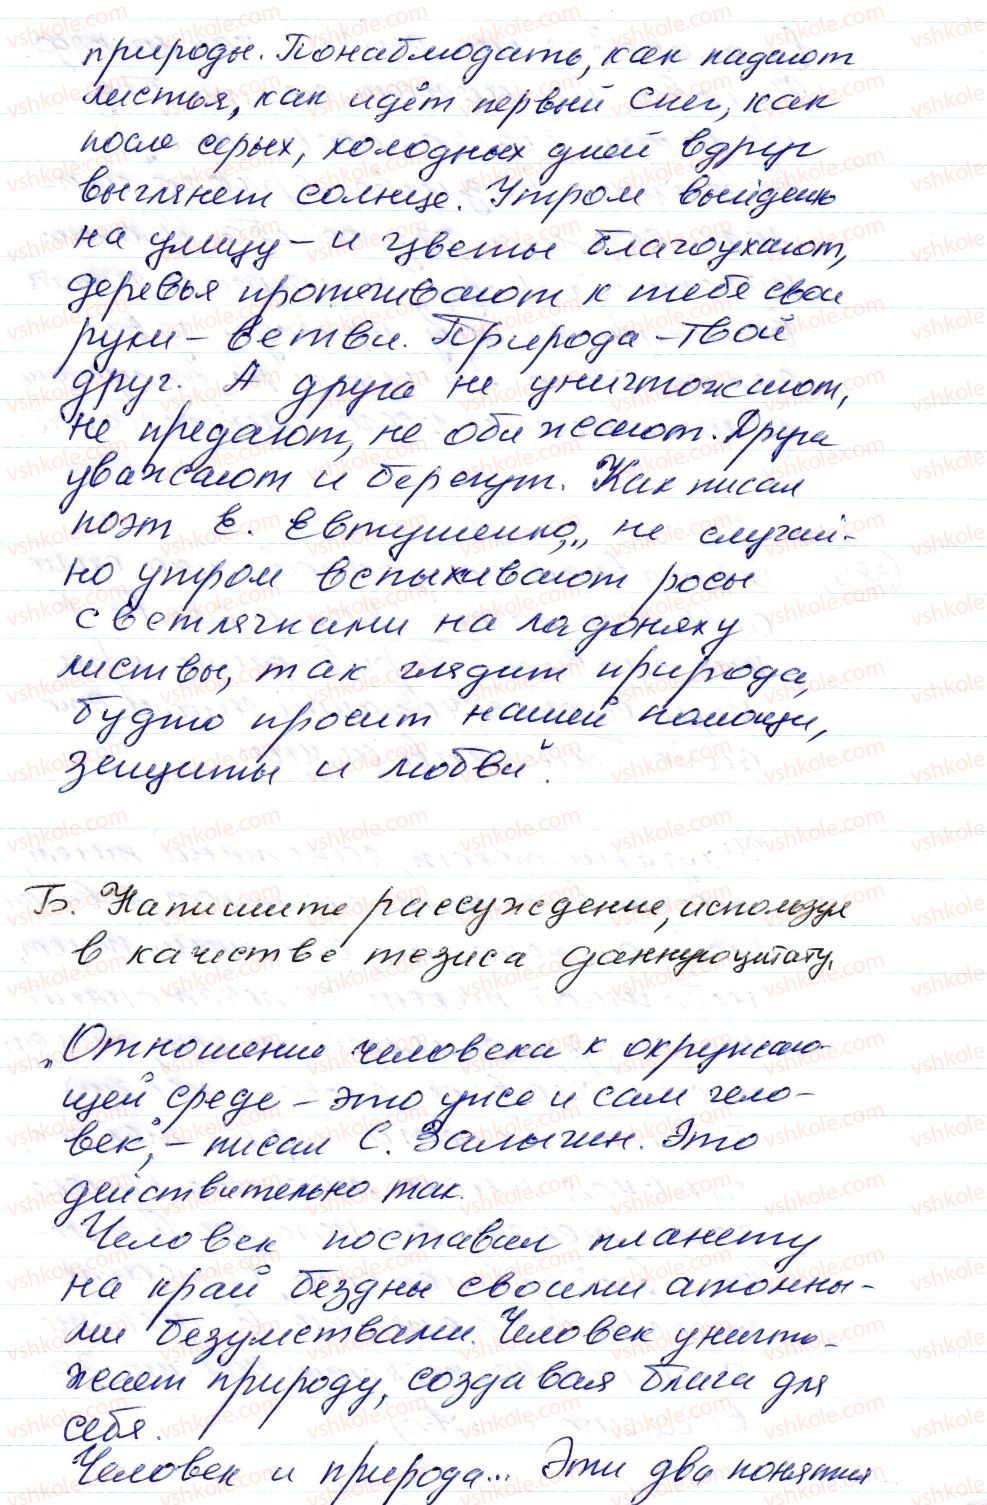 природы. Понаблюдать, как падают
листья, как идёт первый снег, как
после серых, холодных дней вдруг
выглянет солнце. Утром выйдешь
на улицу – и цветы благоухают,
деревья протягивают к тебе свои
руки – ветви. Природа – твой
друг. А друга не уничтожают,
не предают, не обижают. Друга
уважают и берегут. Как писал
поэт Е. Евтушенко, „не случай-
но утром вспыхивают росы
светлячками на ладонях у
листвы, так глядит природа,
будто просит нашей помощи,
защиты и любви".
Б. Напишите рассуждение, используя
в качестве тезиса данную цитату.
„Отношение человека к окружаю-
щей среде – это уже и сам чело-
век", – писал С. Залыгин. Это
действительно так.
Человек поставил планету
на край бездны своими атомны-
ми безумствами. Человек уничто-
жает природу, создавая блага для
себя.
Человек и природа... Эти два понятия
vshkole.com